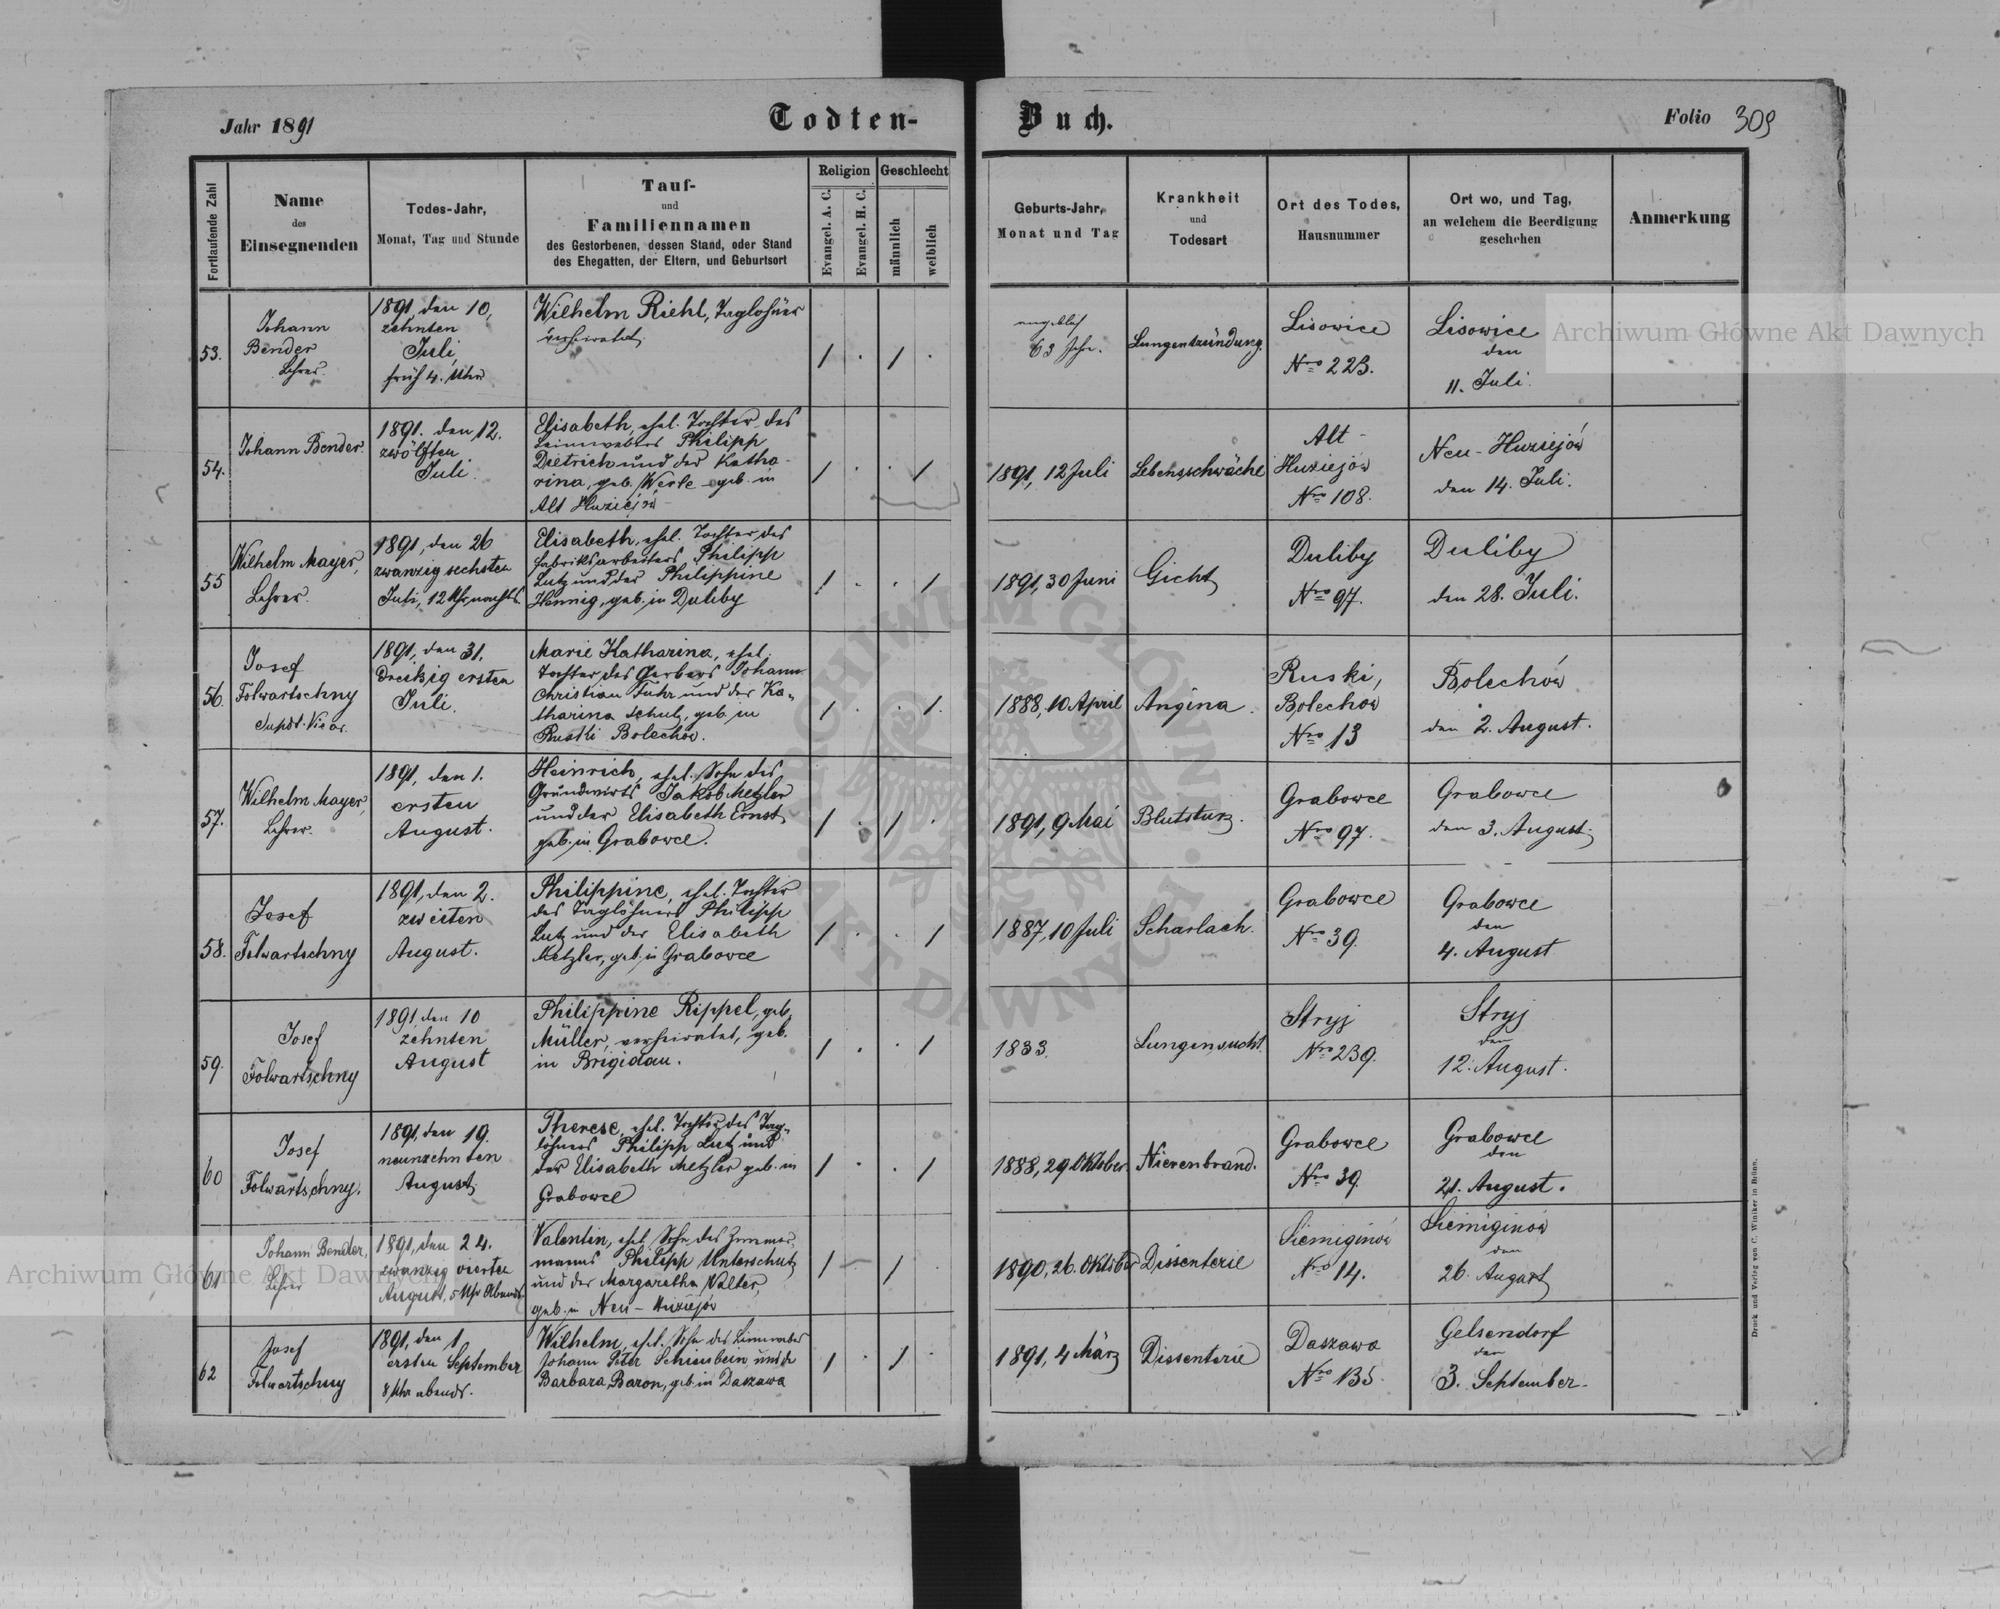 Jahr 1891
Todten-
Buch.
Folio 309
Fortlaufende Zahl
Name
des
Einsegnenden
Todes-Jahr,
Monat, Tag und Stunde
Tauf-
und
Familiennamen
des Gestorbenen, dessen Stand, oder Stand
des Ehegatten, der Eltern, und Geburtsort
Religion
Evangel. A. C.
Evangel. H. C.
Geschlecht
männlich
weiblich
Geburts-Jahr,
Monat und Tag
Krankheit
und
Todesart
Ort des Todes,
Hausnummer
Ort wo, und Tag,
an welchem die Beerdigung
geschehen
Anmerkung
53.
Johann
Bender
Lehrer.
1891, den 10,
zehnten
Juli,
früh 4. Uhr
Wilhelm Riehl, Taglöhner
verheiratet
/ . / .
angeblich
63 Jahr.
Lungentzündung.
Lisowice
Nro 223.
Lisowice
den
11. Juli.
54.
Johann Bender.
1891. den 12.
zwölften
Juli.
Elisabeth, ehel. Tochter des
Leinwebers Philipp
Dietrich und der Katha-
rina, geb. Werle geb. in
Alt Huziejów
/ . . /
1891, 12 Juli
Lebensschwäche
Alt-
Huziejów
Nro 108.
Neu-Huziejów
den 14. Juli.
55
Wilhelm Mayer,
Lehrer.
1891, den 26
zwanzig sechsten
Juli, 12 Uhr nachts.
Elisabeth, ehel. Tochter des
Fabriksarbeiters Philipp
Lutz und der Philippine
Hennig, geb. in Duliby
/ . . /
1891, 30 Juni
Gicht
Duliby
Nro 97.
Duliby
den 28. Juli.
56.
Josef
Folwartschny
Supdt. Vicar.
1891, den 31.
Dreißig ersten
Juli.
Marie Katharina, ehel.
Tochter des Gerbers Johann
Christian Fuhr und der Ka-
tharina Schulz, geb. in
Ruski Bolechów.
/ . . /
1888, 10 April
Angina.
Ruski,
Bolechow
Nro 13
Bolechów
den 2. August.
57.
Wilhelm Mayer,
Lehrer.
1891, den 1.
ersten
August.
Heinrich, ehel. Sohn des
Grundwirts Jakob Metzler
und der Elisabeth Ernst,
geb. in Grabowce.
/ . / .
1891, 9 Mai
Blutsturz.
Grabowce
Nro 97.
Grabowce
den 3. August.
58.
Josef
Folwartschny
1891, den 2.
zweiten
August.
Philippine, ehel. Tochter
des Taglöhners Philipp
Lutz und der Elisabeth
Metzler, geb. in Grabowce
/ . . /
1887, 10 Juli
Scharlach.
Grabowce
Nro 39.
Grabowce
den
4. August
59.
Josef
Folwartschny
1891 den 10
zehnten
August
Philippine Rippel, geb.
Müller, verheiratet, geb.
in Brigidau.
/ . . /
1833.
Lungensucht.
Stryj
Nro 239.
Stryj
den
12. August.
60
Josef
Folwartschny.
1891, den 19.
neunzehnten
August
Therese, ehel. Tochter des Tag-
löhners Philipp Lutz und
der Elisabeth Metzler geb. in
Grabowce
/ . . /
1888, 29 Oktober.
Nierenbrand.
Grabowce
Nro 39
Grabowce
den
21. August.
61
Johann Bender,
Lehrer
1891, den 24.
zwanzig vierten
August, 5 Uhr Abends.
Valentin, ehel. Sohn des Zimmer-
manns Philipp Unterschutz
und der Margaretha Walter,
geb. in Neu-Huziejów
/ – / .
1890, 26. Oktober
Dissenterie
Siemiginów
Nro 14.
Siemiginów
den
26. August
62
Josef
Folwartschny
1891, den 1,
ersten September
8 Uhr abends.
Wilhelm, ehel. Sohn des Leinweber
Johann Peter Schienbein und der
Barbara Baron, geb. in Daszawa
/ . / .
1891, 4 März
Dissenterie
Daszawa
Nro 135.
Gelsendorf
den
3. September.
Druck und Verlag von C. Winiker in Brünn.
Archiwum Główne Akt Dawnych
Archiwum Główne Akt Dawnych
ARCHIWUM GŁÓWNE · AKT DAWNYCH ·